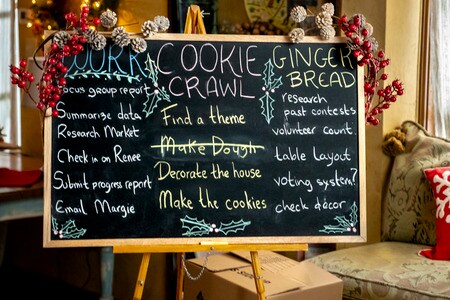 WORK
Focus group report
Summarize data
Research Market
Check in on Renee
Submit progress report
Email Margie
COOKIE
CRAWL
Find a theme
Make Dough
Decorate the house
Make the cookies
GINGER
BREAD
research
past contests
volunteer count
table layout
voting system?
check décor